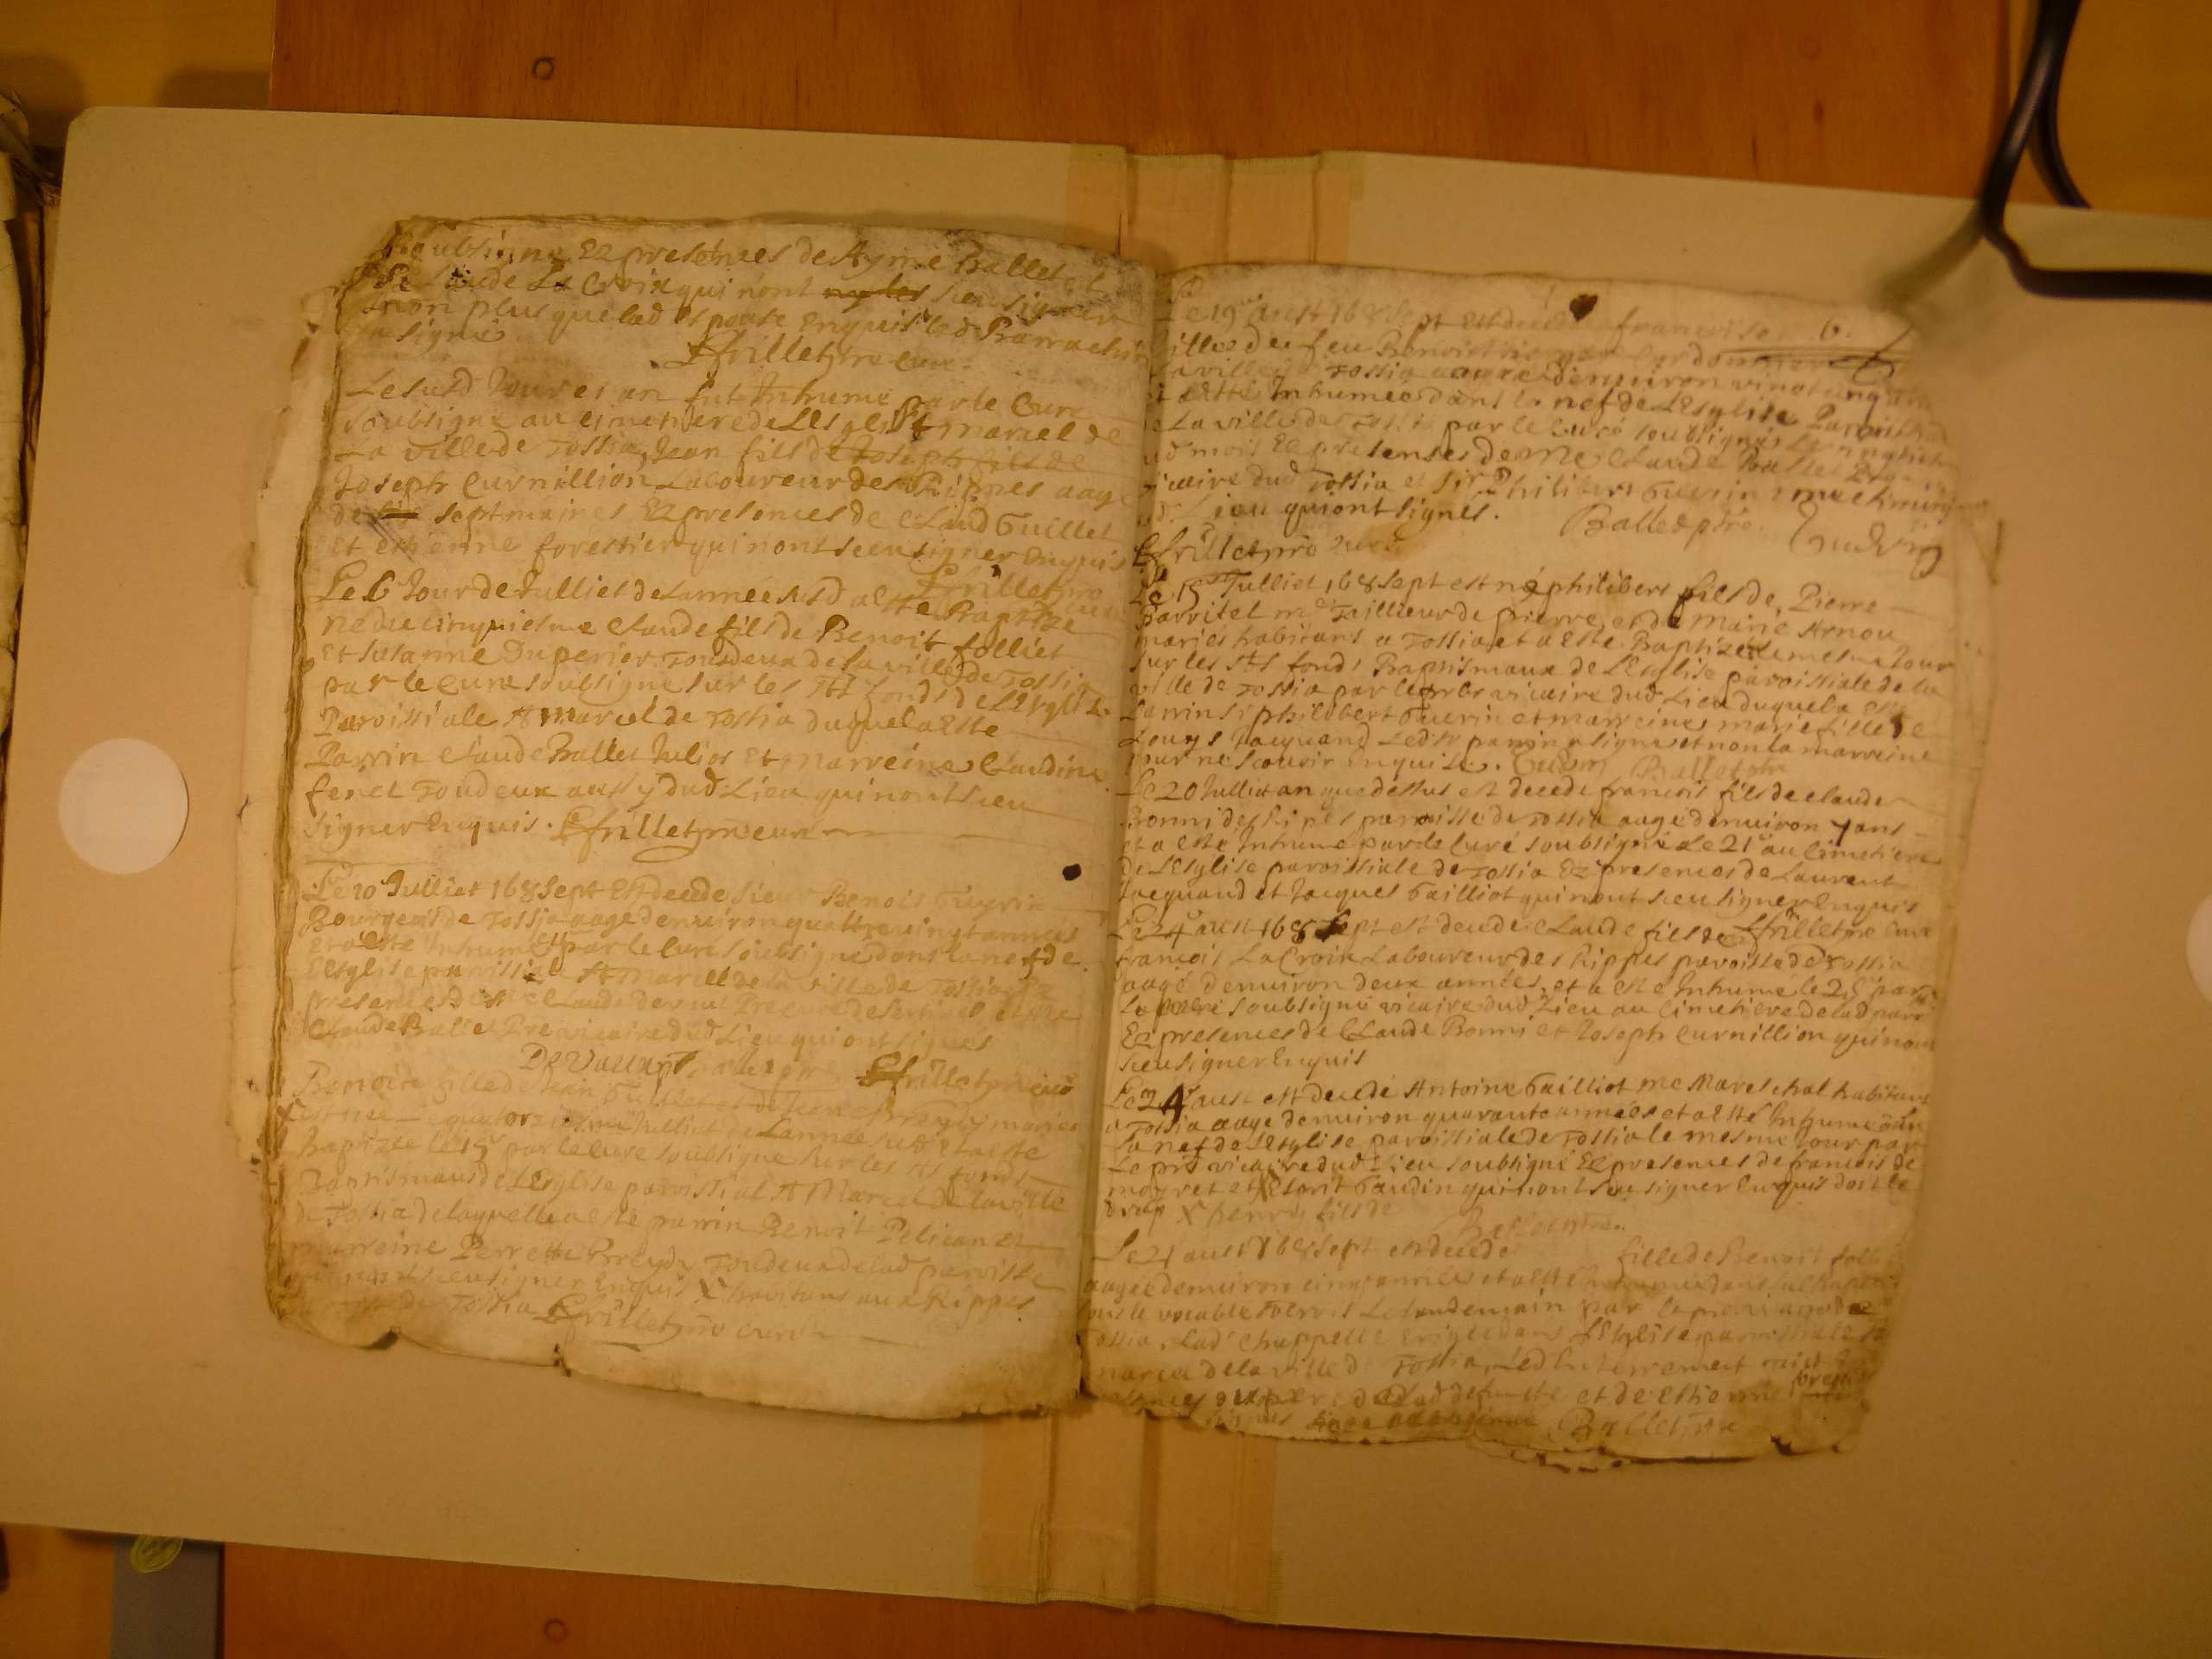 soubsigne Ez presences de Ayme Ballet et
de Claude La Croix qui nont sceu signer
non plus que lad espouse Enquis led
a signe
Efrillet pre cure
Le susd Jour et an fut Inhumé par le Cure
soubsigne au cimetiere de LEsglise St marcel de
La ville de Tossia, Jean fils de Joseph fils de
Joseph Curnillion Laboureur des Rippes aagé
de sept maines Ez presences de Claud Guillet
et estienne forestier qui nont sceu signer Enquis
Efrillet pre cure
Le 6 Jour de Julliet de Lannée susd a esté Baptizé
né du cinquiesme Claude fils de Benoit folliet
et Susanne Duperier Tous deux de la ville de Tossia
par le Cure soubsigne sur les Sts fonds de LEsglise
Paroissiale St marcel de Tossia duquel a este
Parrin Claude Ballet Julios et marreine Claudine
feriel Tous deux aussy dud Lieu qui nont sceu
signer Enquis. Efrillet pre cure
Le 10 Julliet 168 Sept Est decede sieur Benoit Guyrin
Bourgeois de Tossia aagé denuiron quattre vingt années
et a esté Inhumé par le Cure soubsigne dans la nef de
LEsglise paroissiale St Marcel de la ville de Tossia Ez
presences de Mre Claude devaux Pre cure de et Mre
Claude Ballet Pre vicaire dud Lieu qui ont signes
De Vaux Ballet pre Efrillet pre curé
Benoite fille de Jean Guillet et de Jeane Breyd mariés
est née quatorziesme Julliet de Lannée susd Et a esté
baptizée le 15 par le Cure soubsigne sur les Sts fonds
Baptismaux de LEsglise paroissial St Marcel de la ville
de Tossia de laquelle a esté parrin Benoit Pelican et
marreine Perrette Breyd Tous deux de lad paroisse
qui nont sceu signer Enquis X habitans aux Rippes
de Tossia Efrillet pre curé
6.
Le 19 aust 168 Sept est decedée francoise
fille de feu Benoist Cordonnier
La ville de Tossia aagée denuiron vingt cinq ans
et a esté Inhumée dans la nef de LEsglise Paroissiale
de La ville de Tossia par le Curé soubsigné le
dud mois Ez presences de Mre Claude Ballet Pre
vicaire dud Tossia et sir Philibert Guerin me chirurgien
dud Lieu qui ont signes. Ballet pre. Guerin
Efrillet pre cure
Le 15 Julliet 168 Sept est né philibert fils de, Pierre
Parritel me Taillieur de pierre, et de Marie Arnou
mariés habitans a Tossia et a esté Baptizé le mesme Jour
sur les Sts fonds Baptismaux de LEsglise paroissiale de la
ville de Tossia par le pre vicaire dud Lieu duquel a esté
Parrin sr philibert Guerin et marreine marie fille de
Louys Jacquand Led sr parrin a signé et non la marreine
pour ne scavoir Enquise. Guerin Ballet pre
Le 20 Julliet an que dessus est decede francois fils de claude
Bonni des Ripes paroisse de Tossia aagé denuiron 7 ans
et a esté Inhumé par le Curé soubsigné Le 21 au Cimetiere
de LEsglise paroissiale de Tossia Ez presences de Laurent
Jacquand et Jacques Gailliot qui nont sceu signer Enquis
Efrillet pre cure
Le 24 aust 168 Sept est decede Claude fils de
francois La Croix Laboureur des Rippes paroisse de Tossia
aagé denuiron deux années, et a esté Inhumé le 25 par
Le pre soubsigné vicaire dud Lieu au Cimetiere de lad
Ez presences de Claude Bonni et Joseph Curnillion qui nont
sceu signer Enquis
Le 24 aust est decedé Antoine Gailliot me Mareschal habitant
a Tossia aagé denuiron quarante années et a esté Inhumé
La nef de LEsglise paroissiale de Tossia le mesme Jour par
Le pre vicaire dud Lieu soubsigné Ez presences de francois de
et Gaudin qui nont sceu signer Enquis
X henry fils de
Ballet pre
Le 21 aust 168 Sept est decede fille de Benoit
aagée denuiron cinq années et a esté Inhumée dans la chapelle
sous le vocable Le lendemain par le pre vicaire de
Tossia, Lad chappelle Erigée dans LEsglise paroissiale St
marcel de la ville de Tossia, Led Enterrement
du pere de lad defunte et de Estienne
Ballet pre